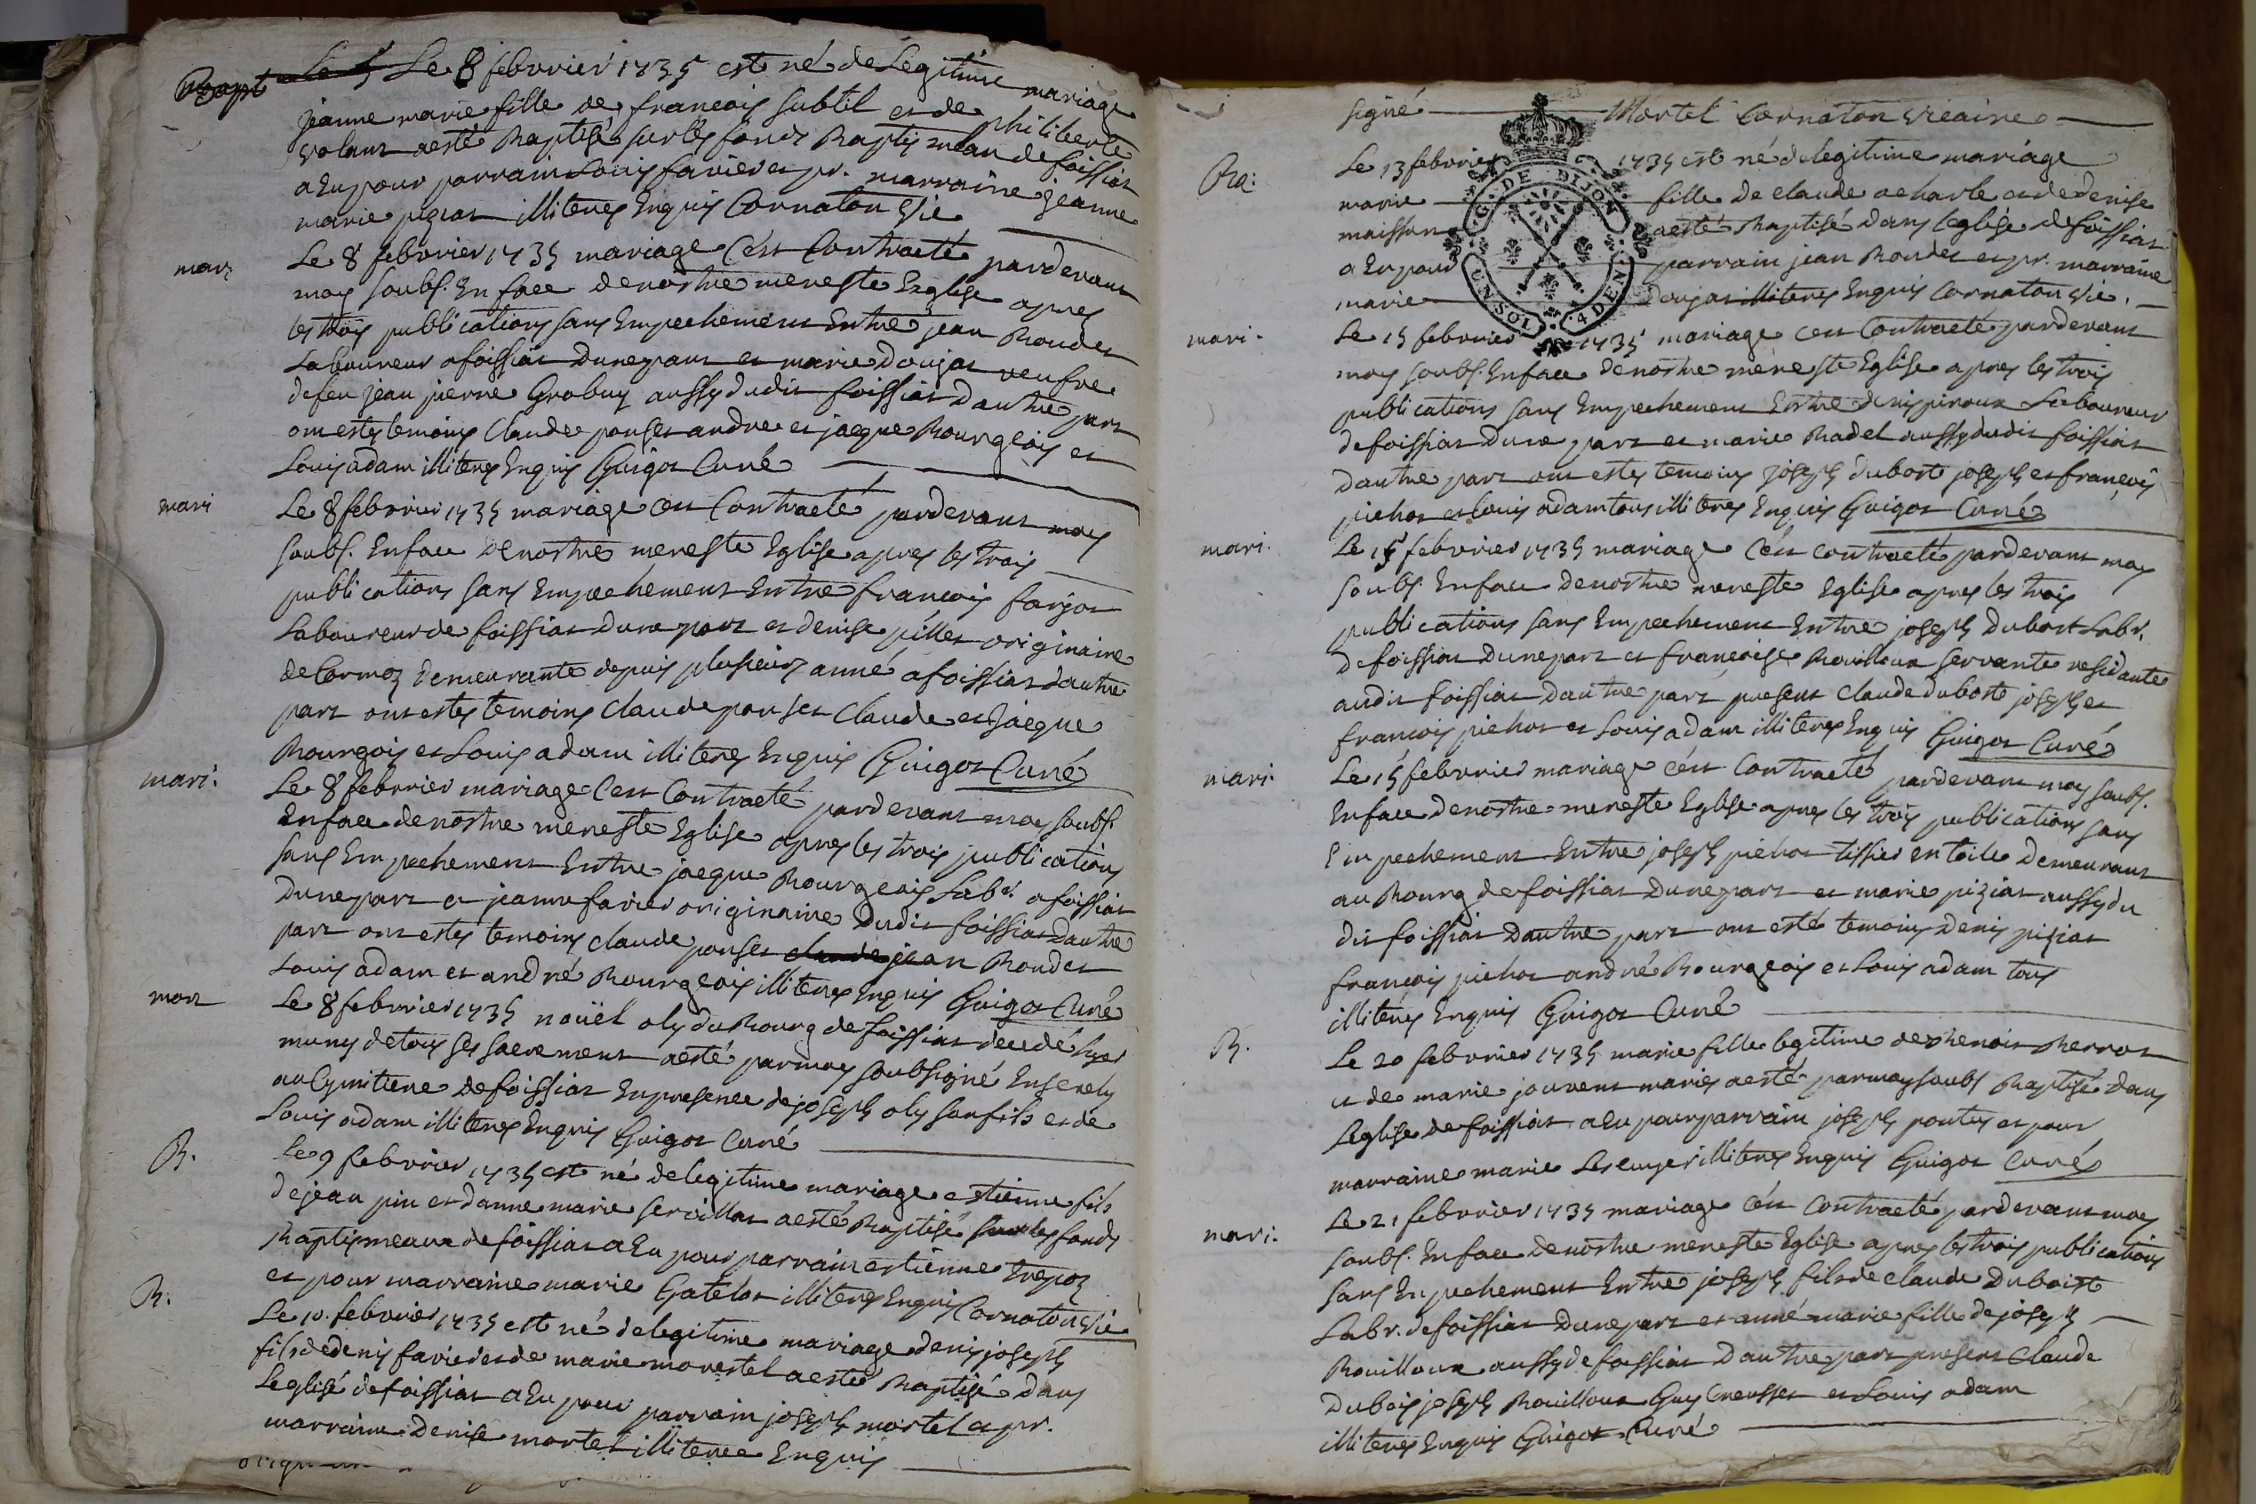 Bapt Le 8 febvrier 1735 est né de Legitime mariage
jeanne marie fille de francois subtil et de philiberte
volant aesté Baptisé sur les fonds Baptismeau de foissiat
a Eu pour parrain Louis favier et pr. marraine jeanne
marie piziat illiteres Enquis Cornaton Vic
mar Le 8 febvrier 1735 mariage C'est Contracté pardevant
moy soubs. En face de nostre mere ste Eglise apres
les trois publications sans Empechement Entre jean Boudet
Laboureur a foissiat dune part et marie doujat veufve
de feu jean pierre Grobuy aussy dudit foissiat Dautre part
ont estes temoins Claude ponset andre et jacque Bourgeois et
Louis adam illiteres Enquis Guigot Curé
mari Le 8 febvrier 1735 mariage C'est Contracté pardevant moy
soubs. En face de nostre mere ste Eglise apres les trois
publications sans Empechement Entre francois farjot
Laboureur de foissiat dune part et denise pillet originaire
de Cormoz Demeurante depuis plusieurs anné a foissiat dautre
part ont estes temoins Claude ponset Claude et Jacque
Bourgois et Louis adam illiteres Enquis Guigot Curé
mari: Le 8 febvrier mariage C'est Contracté pardevant moy soubs.
En face de nostre mere ste Eglise apres les trois publications
sans Empechement Entre jacque Bourgeois Labr. a foissiat
Dune part et jeanne favier originaire Dudit foissiat Dautre
part ont estes temoins claude ponset jean Boudet
Louis adam et andré Bourgeois illiteres Enquis Guigot Curé
mort Le 8 febvrier 1735 nouël oly du Bourg de foissiat decedé hyer
muny de tous ses sacrement aesté par moy soubsigné Ensevely
au Cymitiere de foissiat En presence de joseph oly son fils et de
Louis adam illiteres Enquis Guigot Curé
B. Le 9 febvrier 1735 est né de legitime mariage estienne fils
de jean pin et danne marie servillat aesté Baptisé sur les fonds
Baptismeaux de foissiat a Eu pour parrain estienne trepoz
et pour marraine marie Gatelet illiteres Enquis Cornaton Vic
B. Le 10. febvrier 1735 est né de legitime mariage denis joseph
fils de denis favier et de marie morestel aesté Baptisé dans
Leglisé de foissiat a Eu pour parrain joseph mortel a pr.
marraine Denise mortel illiteree Enquis
signé Mortel Cornaton Vicaire
G. DE DIJON
UN SOL 4 DEN.
Ba: Le 13 febvrier 1735 est né de legitime mariage
marie fille de claude acharle et de denise
maisson aesté Baptisé dans leglise de foissiat
a Eu pour parrain jean Boudet et pr. marraine
marie Doujat illiteres Enquis Cornaton Vic.
mari. Le 15 febvrier 1735 mariage C'est Contracté pardevant
moy soubs. En face de nostre mere ste Eglise apres les trois
publications sans Empechement Entre denis piroux Laboureur
de foissiat Dune part et marie Badel aussy dudit foissiat
dautre part ont estes temoins joseph dubost joseph et francois
pichot et Louis adam tous illiteres Enquis Guigot Curé
mari. Le 15 febvrier 1735 mariage C'est contracté pardevant moy
soubs. En face de nostre mere ste Eglise apres les trois
publications sans Empechement Entre joseph Dubost Labr.
De foissiat Dune part et francoise Bouilloux servante residante
audit foissiat Dautre part present Claude dubost joseph et
francois pichot et Louis adam illiteres Enquis Guigot Curé
mari. Le 15 febvrier mariage C'est Contracté pardevant moy soubs.
En face de nostre mere ste Eglise apres les trois publications sans
Empechement Entre joseph pichot tissier en toile Demeurant
au Bourg de foissiat Dune part et marie piziat aussy du
dit foissiat Dautre part ont esté temoins Denis piziat
francois pichot andré Bourgeois et Louis adam tous
illiteres Enquis Guigot Curé
B. Le 20 febvrier 1735 marie fille legitime de Benoit Berrot
et de marie jouvent maries aesté par moy soubs Baptisé dans
Leglise de foissiat a Eu pour parrain joseph pontus et pour
marraine marie Lescuyer illiteres Enquis Guigot Curé
mari: Le 21 febvrier 1735 mariage C'est Contracté pardevant moy
soubs. En face de nostre mere ste Eglise apres les trois publications
sans Enpechement Entre joseph fils de claude Dubois
Labr. de foissiat Dune part et anne marie fille de joseph
Bouilloux aussy de foissiat Dautre part present Claude
Dubois joseph Bouilloux Guy Creusset et Louis adam
illiteres Enquis Guigot Curé